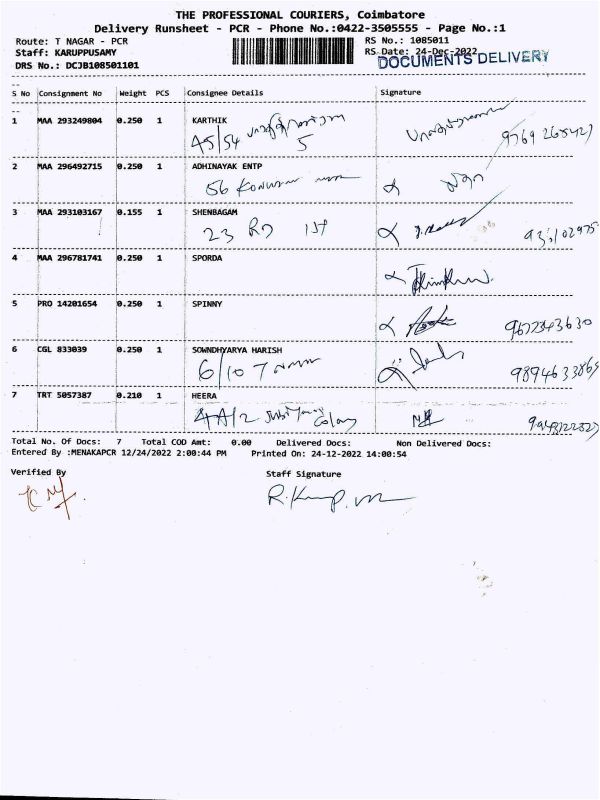 THE PROFESSIONAL COURIERS, Coimbatore
Delivery Runsheet - PCR - Phone No.:0422-3505555 - Page No.:1
Route: T NAGAR - PCR RS No.: 1085011
Staff: KARUPPUSAMY RS Date: 24-Dec-2022
DRS No.: DCJB108501101 DOCUMENTS DELIVERY
S No Consignment No Weight PCS Consignee Details Signature
1 MAA 293249804 0.250 1 KARTHIK
A5/54 5
2 MAA 296492715 0.250 1 ADHINAYAK ENTP
56
3 MAA 293103167 0.155 1 SHENBAGAM
23 RD 1st
4 MAA 296781741 0.250 1 SPORDA
5 PRO 14201654 0.250 1 SPINNY
9677343630
6 CGL 833039 0.250 1 SOWNDHYARYA HARISH
6/10 T
7 TRT 5057387 0.210 1 HEERA
4A/2 Colony
Total No. Of Docs: 7 Total COD Amt: 0.00 Delivered Docs: Non Delivered Docs:
Entered By :MENAKAPCR 12/24/2022 2:00:44 PM Printed On: 24-12-2022 14:00:54
Verified By Staff Signature